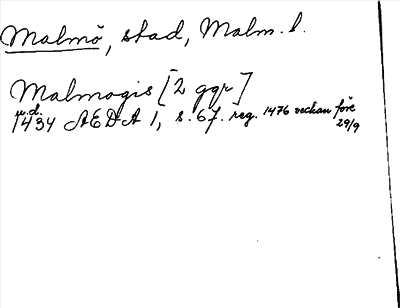 Malmö, stad, Malm. l.
Malmogis [2 ggr]
u.d.
1434 AEDA 1, s. 67. reg. 1476 veckan före
29/9